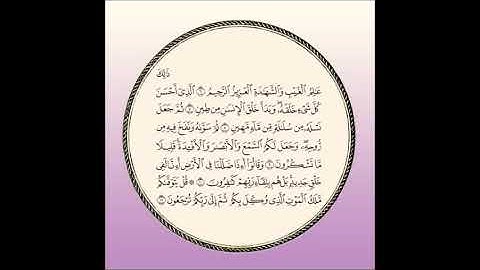 ذَٰلِكَ
عَٰلِمُ ٱلْغَيْبِ وَٱلشَّهَٰدَةِ ٱلْعَزِيزُ ٱلرَّحِيمُ ٦ ٱلَّذِىٓ أَحْسَنَ
كُلَّ شَىْءٍ خَلَقَهُۥ ۖ وَبَدَأَ خَلْقَ ٱلْإِنسَٰنِ مِن طِينٍ ٧ ثُمَّ جَعَلَ
نَسْلَهُۥ مِن سُلَٰلَةٍ مِّن مَّآءٍ مَّهِينٍ ٨ ثُمَّ سَوَّىٰهُ وَنَفَخَ فِيهِ مِن
رُّوحِهِۦ ۖ وَجَعَلَ لَكُمُ ٱلسَّمْعَ وَٱلْأَبْصَٰرَ وَٱلْأَفْـِٔدَةَ ۚ قَلِيلًا
مَّا تَشْكُرُونَ ٩ وَقَالُوٓا۟ أَءِذَا ضَلَلْنَا فِى ٱلْأَرْضِ أَءِنَّا لَفِى
خَلْقٍ جَدِيدٍۭ ۚ بَلْ هُم بِلِقَآءِ رَبِّهِمْ كَٰفِرُونَ ١٠ ۞ قُلْ يَتَوَفَّىٰكُم
مَّلَكُ ٱلْمَوْتِ ٱلَّذِى وُكِّلَ بِكُمْ ثُمَّ إِلَىٰ رَبِّكُمْ تُرْجَعُونَ ١١